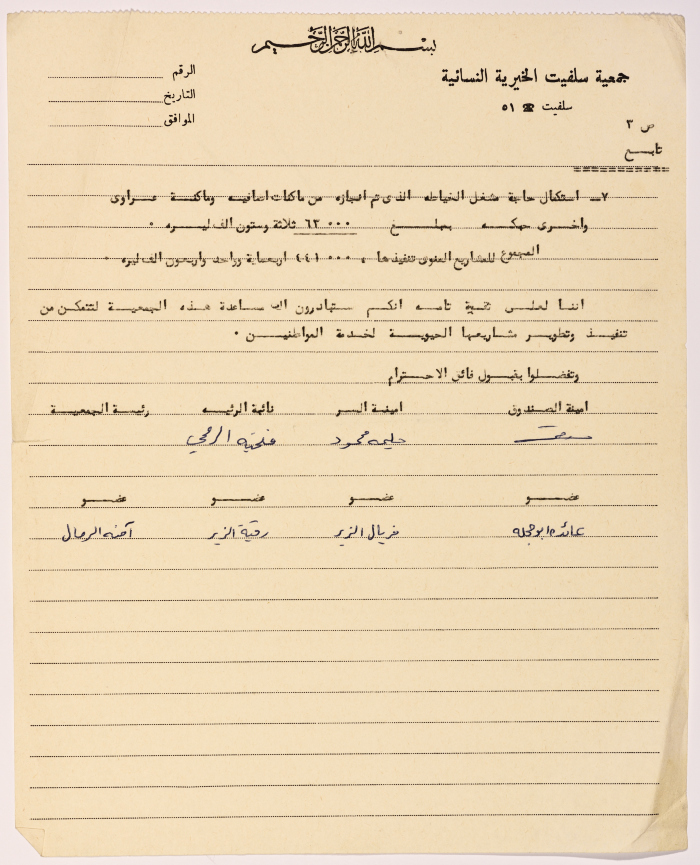 بسم الله الرحمن الرحيم
جمعية سلفيت الخيرية النسائية
سلفيت ☎ ٥١
الرقم
التاريخ
الموافق
ص ٣
تابع
٧ـ استكمال حاجة مشغل الخياطه الذى تم انجازه من ماكنات اضافيه وماكنة عراوى
واخرى حبكه بمبلغ ٦٣٠٠٠ ثلاثة وستون الف ليره .
المجموع للمشاريع المنوى تنفيذها ، ٤٤١٠٠٠ اربعماية وواحد واربعون الف ليره .
اننا لعلى ثقة تامه انكم ستبادرون الى مساعدة هذه الجمعية لتتمكن من
تنفيذ وتطوير مشاريعها الحيوية لخدمة المواطنين .
وتفضلوا بقبول فائق الاحترام
امينة الصندوق امينة السر نائبة الرئيسه رئيسة الجمعية
حليمه محمود فتحيه
عضو عضو عضو عضو
عائده ابو حجله فريال الزير رقية الزير آمنه الرمال